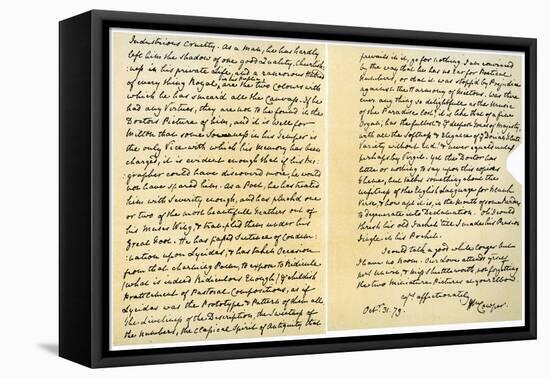 Industrious Cruelty. As a Man, he has hardly
left him the shadow of one good Quality. Churlish-
:ness in his private Life, and a rancorous Hatred
of every thing Royal in his Public, are the two Colours with
which he has smear'd all the Canvass. If he
had any Virtues, they are not to be found in the
Doctor's Picture of him, and it is well for
Milton that some Sourness in his Temper is
the only Vice with which his Memory has been
charged, it is evident enough that if his Bio:
:grapher could have discovered more, he would
not have spared him. As a Poet, he has treated
him with Severity enough, and has pluck'd one
or two of the most beautifull Feathers out of
his Muse's Wing, & trampled them under his
Great Foot. He has pass'd Sentence of Condem:
:nation upon Lycidas, & has taken Occasion
from that charming Poem, to expose to Ridicule
(what is indeed Ridiculous Enough) the childish
Prattlement of Pastoral Compositions, as if
Lycidas was the Prototype & Pattern of them all.
The Liveliness of the Description, the Sweetness of
the Numbers, the Classical Spirit of Antiquity that
prevails in it, go for nothing. I am convinced
by the way that he has no Ear for Poetical
Numbers, or that it was stopp'd by Prejudice
against the Harmony of Milton's. Was there
ever any thing so delightfull as the Music
of the Paradise Lost? it is like that of a fine
Organ; has the fullest & the deepest Tones of Majesty,
with all the Softness & Elegance of the Dorian Flute.
Variety without End! & never equal'd unless
perhaps by Virgil. Yet the Doctor has
little or nothing to say upon this copious
Theme, but talks something about the
unfitness of the English Language for Blank
Verse, & how apt it is, in the Mouth of some Readers,
to degenerate into Declamation. Oh! I could
thresh his old Jacket 'till I made his Pension
Jingle in his Pocket.
I could talk a good while longer but
I have no Room. Our Love attends yourself
Mrs. Unwin, & Miss Shuttleworth, not forgetting
the two Miniature Pictures at your Elbow.
Yrs affectionately,
Octr. 31. 79. Wm Cowper.